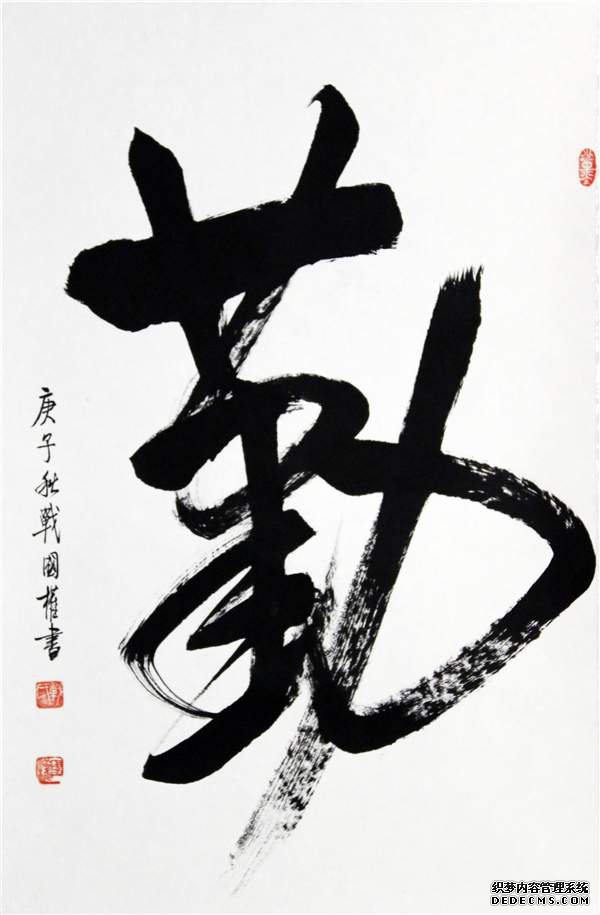 勤
庚子秋戰國權書
织梦内容管理系统
DEDECMS.COM